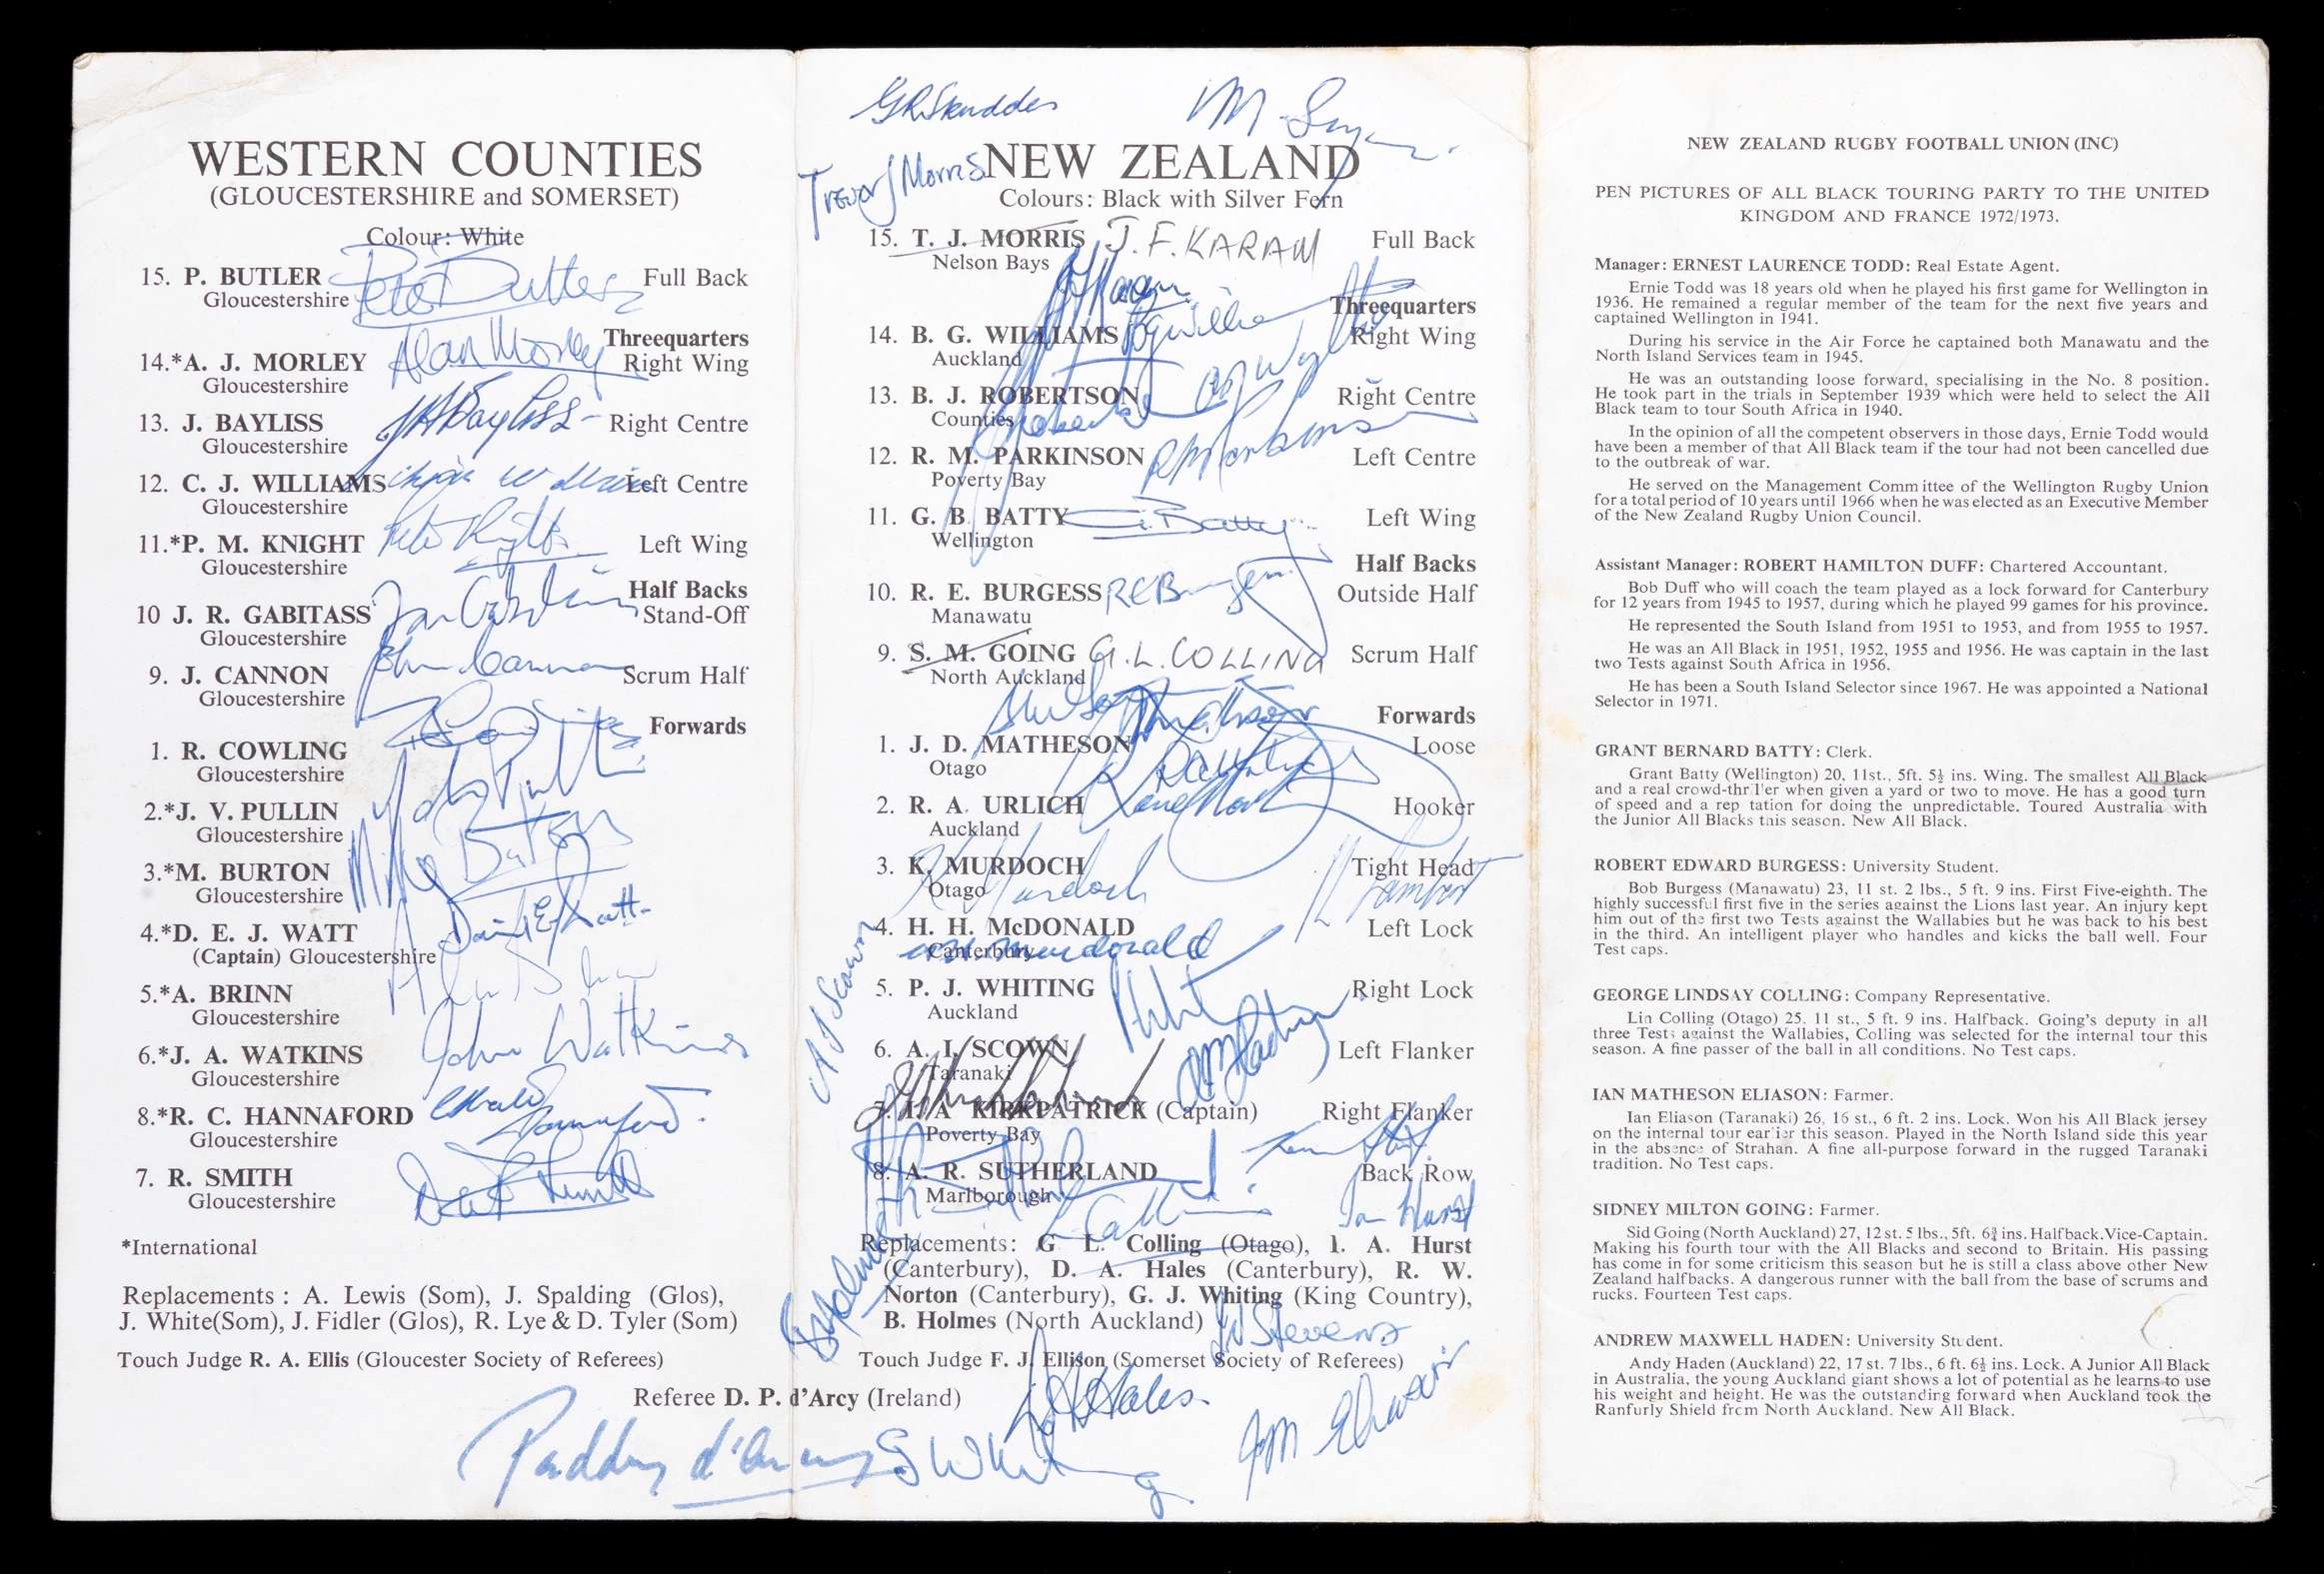 WESTERN COUNTIES
(GLOUCESTERSHIRE and SOMERSET)
Colour: White
15. P. BUTLER Pete Butler Full Back
Gloucestershire
Threequarters
14.*A. J. MORLEY Alan Morley Right Wing
Gloucestershire
13. J. BAYLISS J A Bayliss Right Centre
Gloucestershire
12. C. J. WILLIAMS Left Centre
Gloucestershire
11.*P. M. KNIGHT Peter Knight Left Wing
Gloucestershire
Half Backs
10 J. R. GABITASS Stand-Off
Gloucestershire
9. J. CANNON John Cannon Scrum Half
Gloucestershire
Forwards
1. R. COWLING
Gloucestershire
2.*J. V. PULLIN
Gloucestershire
3.*M. BURTON Mike Burton
Gloucestershire
4.*D. E. J. WATT David E J Watt
(Captain) Gloucestershire
5.*A. BRINN
Gloucestershire
6.*J. A. WATKINS John Watkins
Gloucestershire
8.*R. C. HANNAFORD Hannaford
Gloucestershire
7. R. SMITH Smith
Gloucestershire
*International
Replacements : A. Lewis (Som), J. Spalding (Glos),
J. White(Som), J. Fidler (Glos), R. Lye & D. Tyler (Som)
Touch Judge R. A. Ellis (Gloucester Society of Referees)
Referee D. P. d'Arcy (Ireland)
Paddy d'Arcy
GR Skudder
Trevor J Morris
NEW ZEALAND
Colours: Black with Silver Fern
15. T. J. MORRIS J. F. KARAM Full Back
Nelson Bays
J F Karam
Threequarters
14. B. G. WILLIAMS BG Williams Right Wing
Auckland
13. B. J. ROBERTSON Right Centre
Counties
12. R. M. PARKINSON RM Parkinson Left Centre
Poverty Bay
11. G. B. BATTY G. Batty Left Wing
Wellington
Half Backs
10. R. E. BURGESS RE Burgess Outside Half
Manawatu
9. S. M. GOING G. L. COLLING Scrum Half
North Auckland
Forwards
1. J. D. MATHESON Loose
Otago
2. R. A. URLICH Hooker
Auckland
3. K. MURDOCH Tight Head
Otago
K Murdoch
Lambert
4. H. H. McDONALD Left Lock
Canterbury
5. P. J. WHITING Right Lock
Auckland
A I Scown
6. A. I. SCOWN Left Flanker
Taranaki
7. I. A. KIRKPATRICK (Captain) Right Flanker
Poverty Bay
8. A. R. SUTHERLAND Back Row
Marlborough
Ian Hurst
Replacements: G. L. Colling (Otago), I. A. Hurst
(Canterbury), D. A. Hales (Canterbury), R. W.
Norton (Canterbury), G. J. Whiting (King Country),
B. Holmes (North Auckland)
Stevens
Touch Judge F. J. Ellison (Somerset Society of Referees)
D A Hales
G Whiting
NEW ZEALAND RUGBY FOOTBALL UNION (INC)
PEN PICTURES OF ALL BLACK TOURING PARTY TO THE UNITED
KINGDOM AND FRANCE 1972/1973.
Manager: ERNEST LAURENCE TODD: Real Estate Agent.
Ernie Todd was 18 years old when he played his first game for Wellington in
1936. He remained a regular member of the team for the next five years and
captained Wellington in 1941.
During his service in the Air Force he captained both Manawatu and the
North Island Services team in 1945.
He was an outstanding loose forward, specialising in the No. 8 position.
He took part in the trials in September 1939 which were held to select the All
Black team to tour South Africa in 1940.
In the opinion of all the competent observers in those days, Ernie Todd would
have been a member of that All Black team if the tour had not been cancelled due
to the outbreak of war.
He served on the Management Committee of the Wellington Rugby Union
for a total period of 10 years until 1966 when he was elected as an Executive Member
of the New Zealand Rugby Union Council.
Assistant Manager: ROBERT HAMILTON DUFF: Chartered Accountant.
Bob Duff who will coach the team played as a lock forward for Canterbury
for 12 years from 1945 to 1957, during which he played 99 games for his province.
He represented the South Island from 1951 to 1953, and from 1955 to 1957.
He was an All Black in 1951, 1952, 1955 and 1956. He was captain in the last
two Tests against South Africa in 1956.
He has been a South Island Selector since 1967. He was appointed a National
Selector in 1971.
GRANT BERNARD BATTY: Clerk.
Grant Batty (Wellington) 20, 11st., 5ft. 5½ ins. Wing. The smallest All Black
and a real crowd-thr ller when given a yard or two to move. He has a good turn
of speed and a rep tation for doing the unpredictable. Toured Australia with
the Junior All Blacks this season. New All Black.
ROBERT EDWARD BURGESS: University Student.
Bob Burgess (Manawatu) 23, 11 st. 2 lbs., 5 ft. 9 ins. First Five-eighth. The
highly successful first five in the series against the Lions last year. An injury kept
him out of the first two Tests against the Wallabies but he was back to his best
in the third. An intelligent player who handles and kicks the ball well. Four
Test caps.
GEORGE LINDSAY COLLING: Company Representative.
Lin Colling (Otago) 25, 11 st., 5 ft. 9 ins. Halfback. Going's deputy in all
three Tests against the Wallabies, Colling was selected for the internal tour this
season. A fine passer of the ball in all conditions. No Test caps.
IAN MATHESON ELIASON: Farmer.
Ian Eliason (Taranaki) 26, 16 st., 6 ft. 2 ins. Lock. Won his All Black jersey
on the internal tour earlier this season. Played in the North Island side this year
in the absence of Strahan. A fine all-purpose forward in the rugged Taranaki
tradition. No Test caps.
SIDNEY MILTON GOING: Farmer.
Sid Going (North Auckland) 27, 12 st. 5 lbs., 5ft. 6¾ ins. Halfback. Vice-Captain.
Making his fourth tour with the All Blacks and second to Britain. His passing
has come in for some criticism this season but he is still a class above other New
Zealand halfbacks. A dangerous runner with the ball from the base of scrums and
rucks. Fourteen Test caps.
ANDREW MAXWELL HADEN: University Student.
Andy Haden (Auckland) 22, 17 st. 7 lbs., 6 ft. 6½ ins. Lock. A Junior All Black
in Australia, the young Auckland giant shows a lot of potential as he learns to use
his weight and height. He was the outstanding forward when Auckland took the
Ranfurly Shield from North Auckland. New All Black.